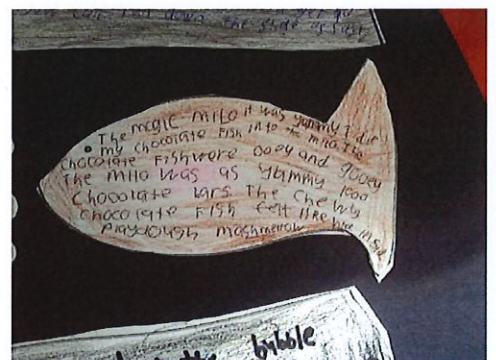 can run down the slide as fast
The magic milo it was yummy I diey
my chocolate Fish into the milo. The
Chocolate Fish were ooey and gooey
The milo was as yummy 1000
Chocolate bars The chewy
Chocolate Fish felt like
playdough mashmerow
bubble